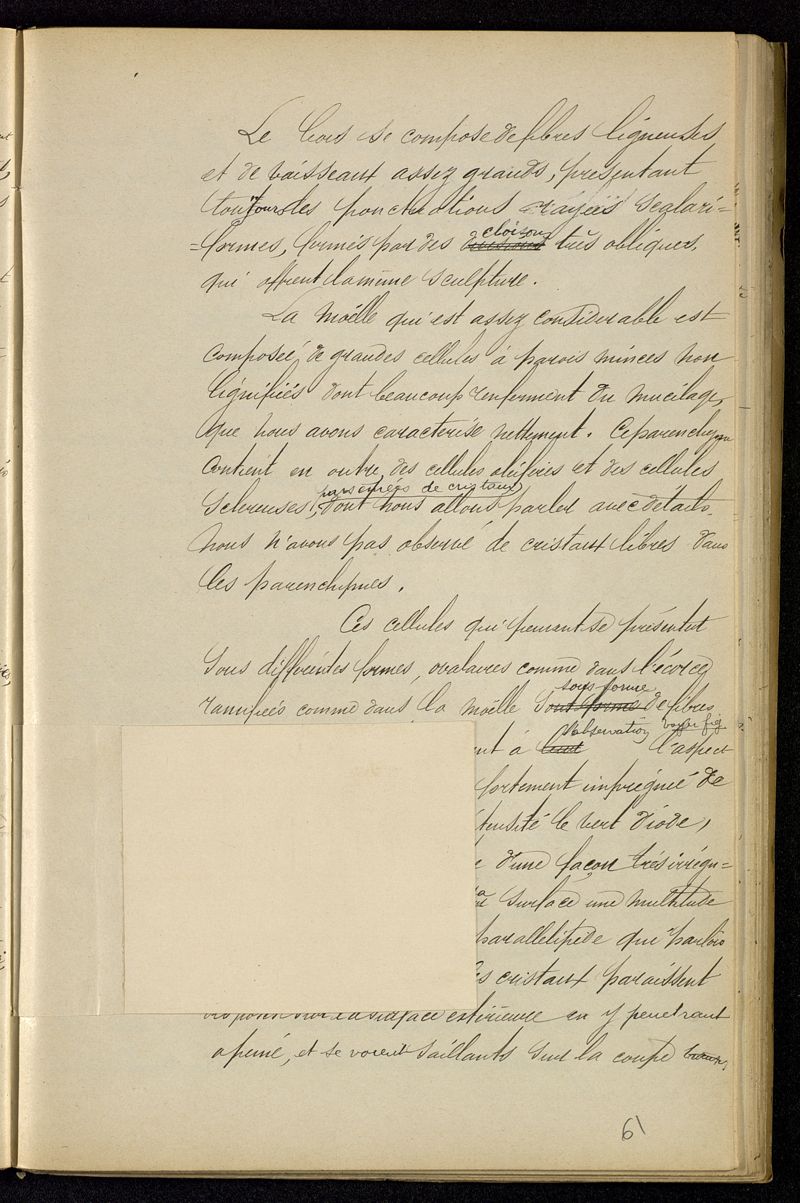 Le bois se compose de fibres ligneuses
et de vaisseaux assez grands, présentant
toujours des ponctuations rayées scalari=
=formes, formés par des cloisons très obliques,
qui offrent la même sculpture.
La moélle qui est assez considerable est
composée de grandes cellules à parois minces non
lignifiés dont beaucoup renferment du mucilage,
que nous avons caracterisé nettement. Ce parenchyme
contient en outre des cellules oleifères et des cellules
sclereuses, parsemées de cristaux, dont nous allons parler avec détails.
nous n'avons pas observé de cristaux libres dans
les parenchymes.
Ces cellules qui peuvent se présenter
sous differentes formes, ovalaires comme dans l'écorce,
ramifiées comme dans la moélle sous forme de fibres
nt à l'observation voyez fig l'aspect
fortement impregnée de
tensité le vert d'iode,
d'une façon très irrégu=
la surface une multitude
parallelipede qui parfois
s cristaux paraissent
surface extérieure en y penetrant
a peine, et se voient saillants sur la coupe
61